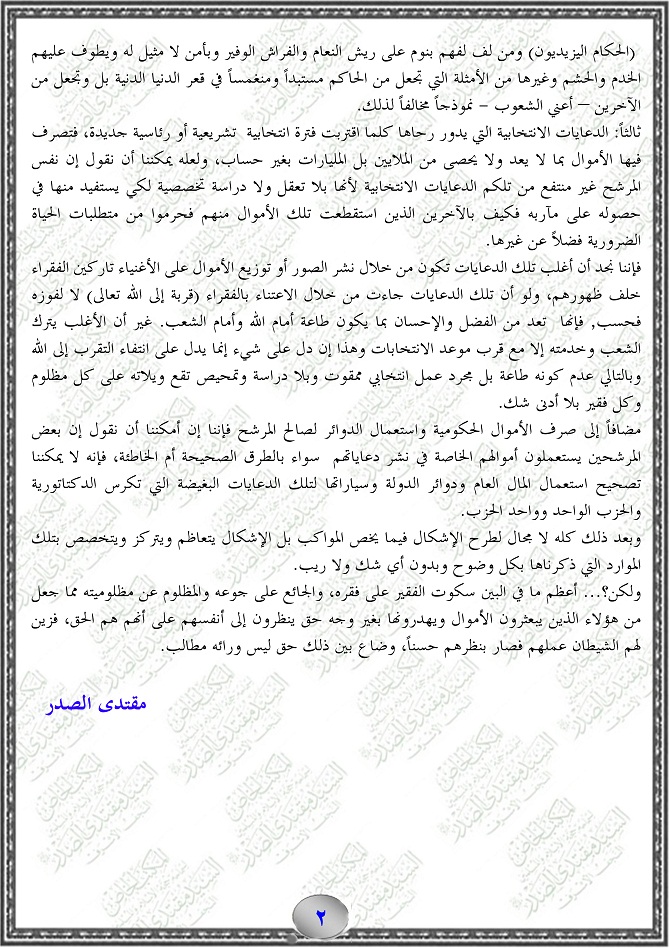 (الحكام اليزيديون) ومن لف لفهم بنوم على ريش النعام والفراش الوفير وبأمن لا مثيل له ويطوف عليهم
الخدم والحشم وغيرها من الأمثلة التي تجعل من الحاكم مستبداً ومنغمساً في قعر الدنيا الدنية بل وتجعل من
الآخرين – أعني الشعوب – نموذجاً مخالفاً لذلك.
ثالثاً: الدعايات الانتخابية التي يدور رحاها كلما اقتربت فترة انتخابية تشريعية أو رئاسية جديدة، فتصرف
فيها الأموال بما لا يعد ولا يحصى من الملايين بل المليارات بغير حساب، ولعله يمكننا أن نقول إن نفس
المرشح غير منتفع من تلكم الدعايات الانتخابية لأنها بلا تعقل ولا دراسة تخصصية لكي يستفيد منها في
حصوله على مآربه فكيف بالآخرين الذين استقطعت تلك الأموال منهم فحرموا من متطلبات الحياة
الضرورية فضلاً عن غيرها.
فإننا نجد أن أغلب تلك الدعايات تكون من خلال نشر الصور أو توزيع الأموال على الأغنياء تاركين الفقراء
خلف ظهورهم، ولو أن تلك الدعايات جاءت من خلال الاعتناء بالفقراء (قربة إلى الله تعالى) لا لفوزه
فحسب, فإنها تعد من الفضل والإحسان بما يكون طاعة أمام الله وأمام الشعب. غير أن الأغلب يترك
الشعب وخدمته إلا مع قرب موعد الانتخابات وهذا إن دل على شيء إنما يدل على انتفاء التقرب إلى الله
وبالتالي عدم كونه طاعة بل مجرد عمل انتخابي ممقوت وبلا دراسة وتمحيص تقع ويلاته على كل مظلوم
وكل فقير بلا أدنى شك.
مضافاً إلى صرف الأموال الحكومية واستعمال الدوائر لصالح المرشح فإننا إن أمكننا أن نقول إن بعض
المرشحين يستعملون أموالهم الخاصة في نشر دعاياتهم سواء بالطرق الصحيحة أم الخاطئة، فإنه لا يمكننا
تصحيح استعمال المال العام ودوائر الدولة وسياراتها لتلك الدعايات البغيضة التي تكرس الدكتاتورية
والحزب الواحد وواحد الحزب.
وبعد ذلك كله لا مجال لطرح الإشكال فيما يخص المواكب بل الإشكال يتعاظم ويتركز ويتخصص بتلك
الموارد التي ذكرناها بكل وضوح وبدون أي شك ولا ريب.
ولكن؟... أعظم ما في البين سكوت الفقير على فقره، والجائع على جوعه والمظلوم عن مظلوميته مما جعل
من هؤلاء الذين يبعثرون الأموال ويهدرونها بغير وجه حق ينظرون إلى أنفسهم على أنهم هم الحق، فزين
لهم الشيطان عملهم فصار بنظرهم حسناً، وضاع بين ذلك حق ليس ورائه مطالب.
مقتدى الصدر
٢